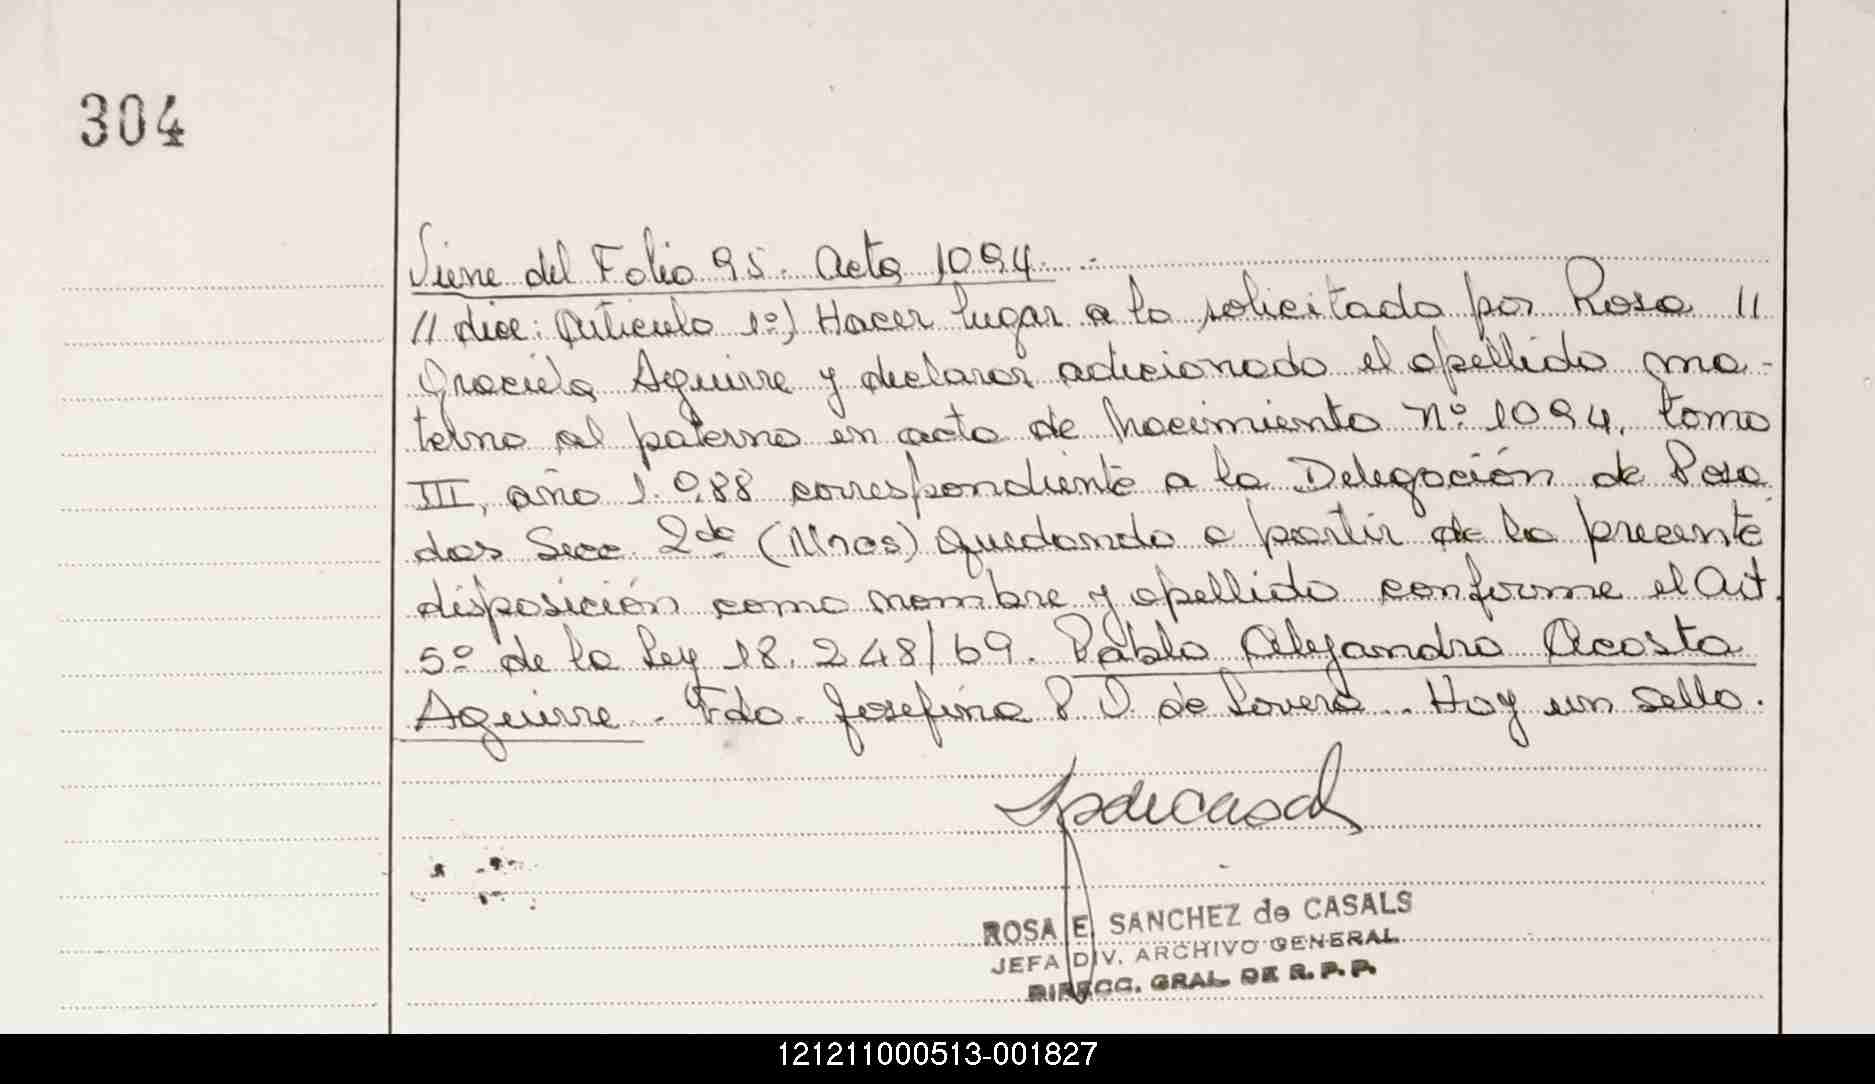 304
Viene del Folio 95. Acta 1094.
// dice: Artículo 1º) Hacer lugar a lo solicitado por Rosa //
Graciela Aguirre y declarar adicionado el apellido ma-
terno al paterno en acta de nacimiento nº 1094, tomo
III, año 1.988 correspondiente a la Delegación de Posa
das Secc 2da (Mnes) quedando a partir de la presente
disposición como nombre y apellido conforme el Art.
5º de la Ley 18.248/69. Pablo Alejandro Acosta
Aguirre. Fdo. Josefina P. O de Lovera. Hay un sello.
ROSA E. SANCHEZ de CASALS
JEFA DIV. ARCHIVO GENERAL
DIRECC. GRAL. DE R. P. P.
121211000513-001827